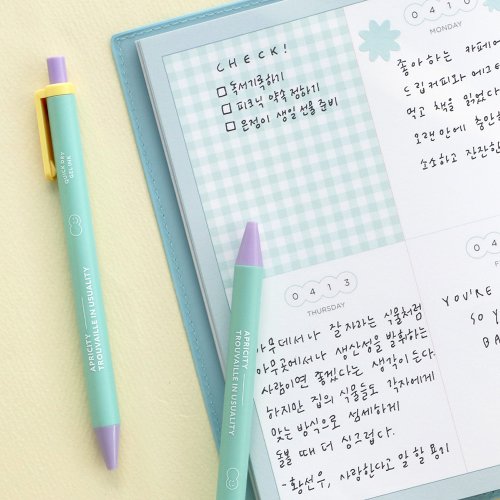 QUICK DRY
GEL INK
APRICITY
TROUVAILLE IN USUALITY
CHECK!
독서기록하기
피크닉 약속 정하기
은정이 생일 선물 준비
0410
MONDAY
좋아하는 카페에
드립커피와 에그타
먹고 책을 읽었다
오랜만에 충만한
소소하고 잔잔한
APRICITY
TROUVAILLE IN USUALITY
0413
THURSDAY
아무데서나 잘 자라는 식물처럼
아무곳에서나 생산성을 발휘하는
사람이면 좋겠다는 생각이 든다.
하지만 집의 식물들도 각자에게
맞는 방식으로 섬세하게
돌볼 때 더 싱그럽다.
-황선우, 사랑한다고 말할 용기
04
F
YOU'RE
SO Y
BA